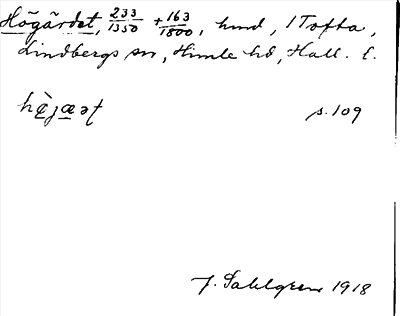 Högärdet, 233/1350 + 163/1800, hmd, 1 Tofta,
Lindbergs sn, Himle hd, Hall. l.
s. 109
J. Sahlgren 1918